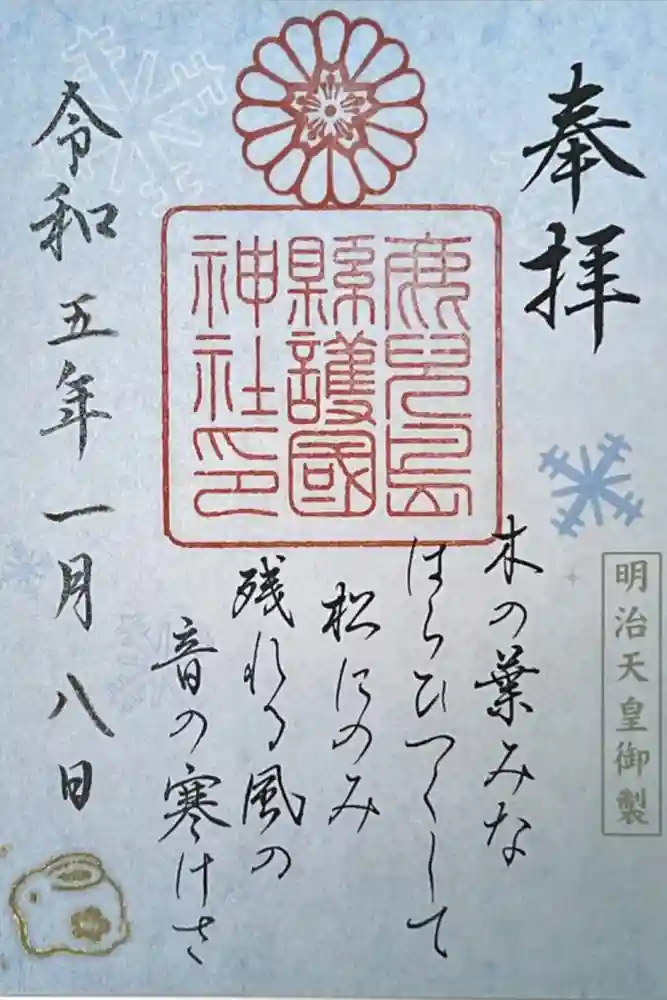 奉拝
明治天皇御製
鹿児島
縣護國
神社印
木の葉みな
はらひつくして
松にのみ
残れる風の
音の寒けさ
令和五年一月八日